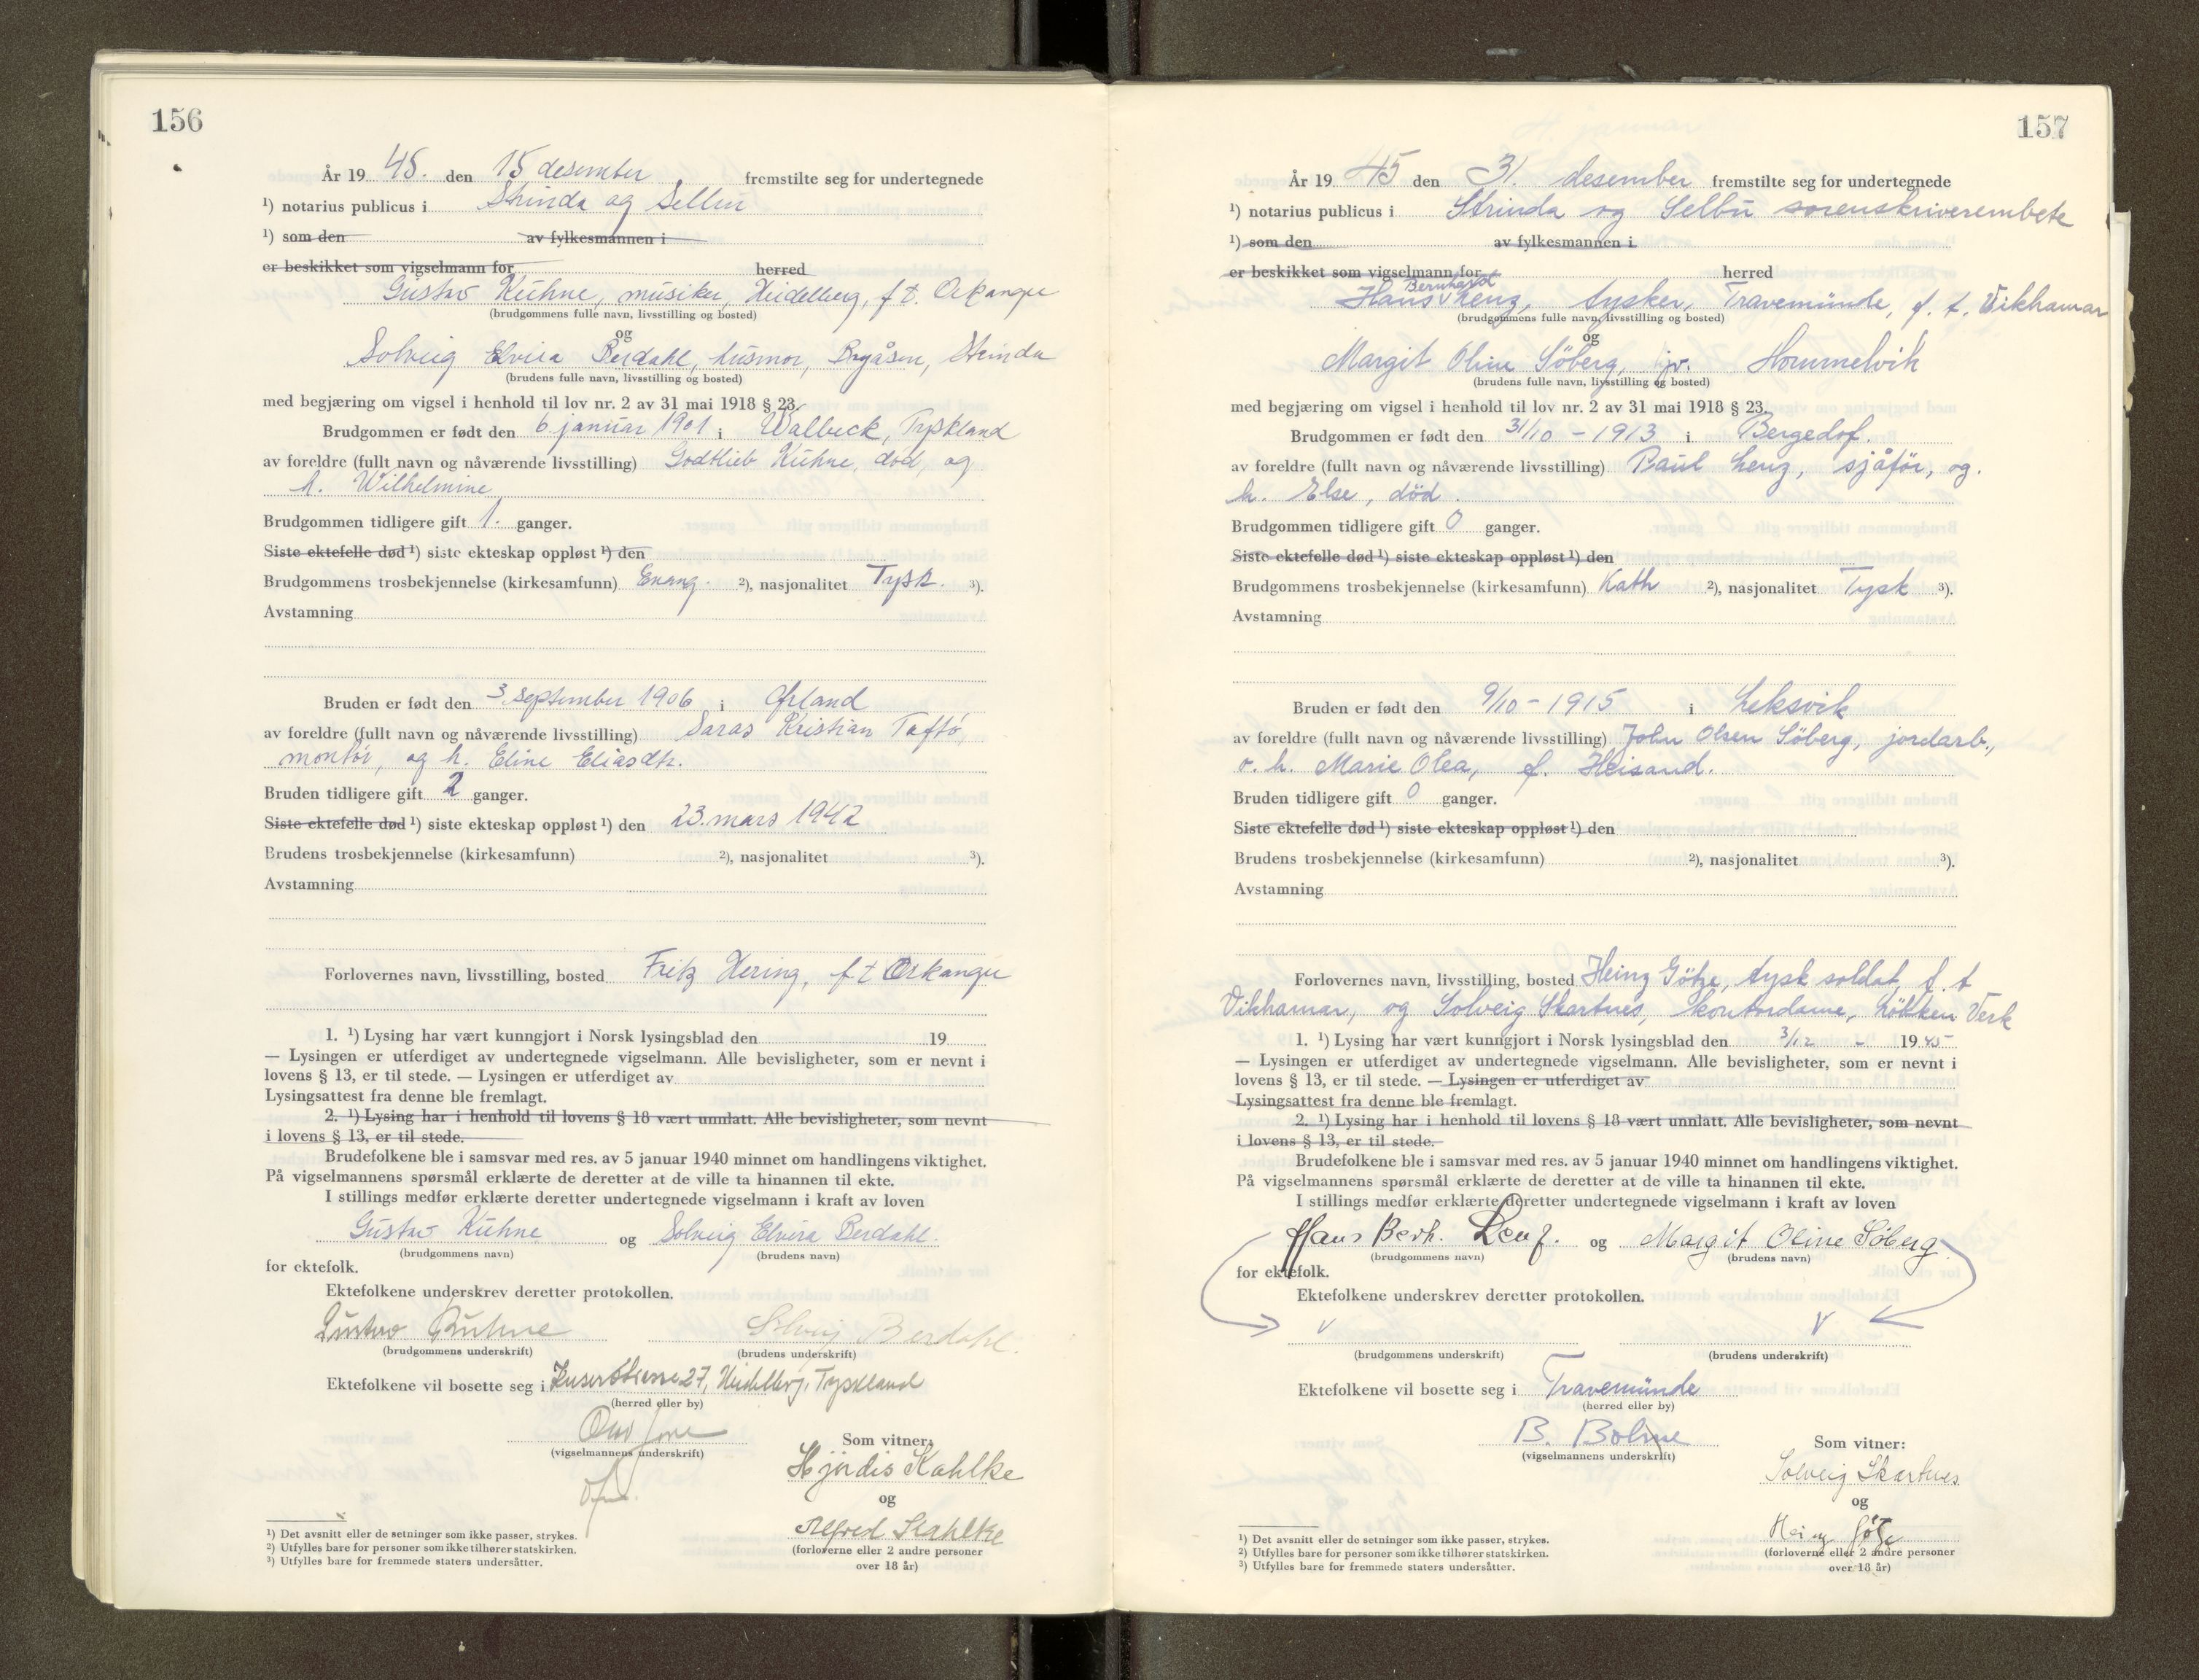 156
År 19 45. den 15 desember fremstilte seg for undertegnede
¹) notarius publicus i Strinda og Selbu
¹) som den av fylkesmannen i
er beskikket som vigselmann for herred
Gustav Kühne, musiker, Heidelberg, f t. Orkanger
(brudgommens fulle navn, livsstilling og bosted)
og
Solveig Elvira Berdahl, husmor, Byåsen, Strinda
(brudens fulle navn, livsstilling og bosted)
med begjæring om vigsel i henhold til lov nr. 2 av 31 mai 1918 § 23.
Brudgommen er født den 6 januar 1901 i Walbeck, Tyskland
av foreldre (fullt navn og nåværende livsstilling) Godtlieb Kühne, død, og
h. Wilhelmine
Brudgommen tidligere gift 1. ganger.
Siste ektefelle død ¹) siste ekteskap oppløst ¹) den
Brudgommens trosbekjennelse (kirkesamfunn) Evang. ²), nasjonalitet Tysk. ³).
Avstamning
Bruden er født den 3 september 1906 i Ørland
av foreldre (fullt navn og nåværende livsstilling) Saras Kristian Taftø,
montør, og h. Eline Eliasdtr.
Bruden tidligere gift 2 ganger.
Siste ektefelle død ¹) siste ekteskap oppløst ¹) den 23. mars 1942
Brudens trosbekjennelse (kirkesamfunn) ²), nasjonalitet ³).
Avstamning
Forlovernes navn, livsstilling, bosted Fritz Hering, f t Orkanger
1. ¹) Lysing har vært kunngjort i Norsk lysingsblad den 19
— Lysingen er utferdiget av undertegnede vigselmann. Alle bevisligheter, som er nevnt i
lovens § 13, er til stede. — Lysingen er utferdiget av
Lysingsattest fra denne ble fremlagt.
2. ¹) Lysing har i henhold til lovens § 18 vært unnlatt. Alle bevisligheter, som nevnt
i lovens § 13, er til stede.
Brudefolkene ble i samsvar med res. av 5 januar 1940 minnet om handlingens viktighet.
På vigselmannens spørsmål erklærte de deretter at de ville ta hinannen til ekte.
I stillings medfør erklærte deretter undertegnede vigselmann i kraft av loven
Gustav Kühne og Solveig Elvira Berdahl.
(brudgommens navn) (brudens navn)
for ektefolk.
Ektefolkene underskrev deretter protokollen.
Gustav Kühne Solveig Berdahl.
(brudgommens underskrift) (brudens underskrift)
Ektefolkene vil bosette seg i 27, Heidelberg, Tyskland
(herred eller by)
(vigselmannens underskrift)
Som vitner:
Hjørdis Kahlke
og
Alfred Kahlke
(forloverne eller 2 andre personer
over 18 år)
¹) Det avsnitt eller de setninger som ikke passer, strykes.
²) Utfylles bare for personer som ikke tilhører statskirken.
³) Utfylles bare for fremmede staters undersåtter.
157
År 19 45 den 31. desember fremstilte seg for undertegnede
¹) notarius publicus i Strinda og Selbu sorenskriverembete
¹) som den av fylkesmannen i
er beskikket som vigselmann for herred
Hans Bernhard Lenz, tysker, Travemünde, f. t. Vikhamar
(brudgommens fulle navn, livsstilling og bosted)
og
Margit Oline Söberg, jv. Hommelvik
(brudens fulle navn, livsstilling og bosted)
med begjæring om vigsel i henhold til lov nr. 2 av 31 mai 1918 § 23.
Brudgommen er født den 31/10 - 1913 i Bergedof.
av foreldre (fullt navn og nåværende livsstilling) Paul Lenz, sjåför, og.
h. Else, död.
Brudgommen tidligere gift 0 ganger.
Siste ektefelle død ¹) siste ekteskap oppløst ¹) den
Brudgommens trosbekjennelse (kirkesamfunn) Kath ²), nasjonalitet Tysk ³).
Avstamning
Bruden er født den 9/10 - 1915 i Leksvik
av foreldre (fullt navn og nåværende livsstilling) John Olsen Söberg, jordarb.,
o. h. Marie Olea, f. Heisand.
Bruden tidligere gift 0 ganger.
Siste ektefelle død ¹) siste ekteskap oppløst ¹) den
Brudens trosbekjennelse (kirkesamfunn) ²), nasjonalitet ³).
Avstamning
Forlovernes navn, livsstilling, bosted Heinz Götze, tysk soldat, f. t
Vikhamar, og Solveig Skartnes, kontordame, Lökken Verk
1. ¹) Lysing har vært kunngjort i Norsk lysingsblad den 3/12 - 19 45
— Lysingen er utferdiget av undertegnede vigselmann. Alle bevisligheter, som er nevnt i
lovens § 13, er til stede. — Lysingen er utferdiget av
Lysingsattest fra denne ble fremlagt.
2. ¹) Lysing har i henhold til lovens § 18 vært unnlatt. Alle bevisligheter, som nevnt
i lovens § 13, er til stede.
Brudefolkene ble i samsvar med res. av 5 januar 1940 minnet om handlingens viktighet.
På vigselmannens spørsmål erklærte de deretter at de ville ta hinannen til ekte.
I stillings medfør erklærte deretter undertegnede vigselmann i kraft av loven
Hans Berh. Lenz. og Margit Oline Söberg
(brudgommens navn) (brudens navn)
for ektefolk.
Ektefolkene underskrev deretter protokollen.
v v
(brudgommens underskrift) (brudens underskrift)
Ektefolkene vil bosette seg i Travemünde
(herred eller by)
B. Bohne
(vigselmannens underskrift)
Som vitner:
Solveig Skartnes
og
Heinz Götze
(forloverne eller 2 andre personer
over 18 år)
¹) Det avsnitt eller de setninger som ikke passer, strykes.
²) Utfylles bare for personer som ikke tilhører statskirken.
³) Utfylles bare for fremmede staters undersåtter.